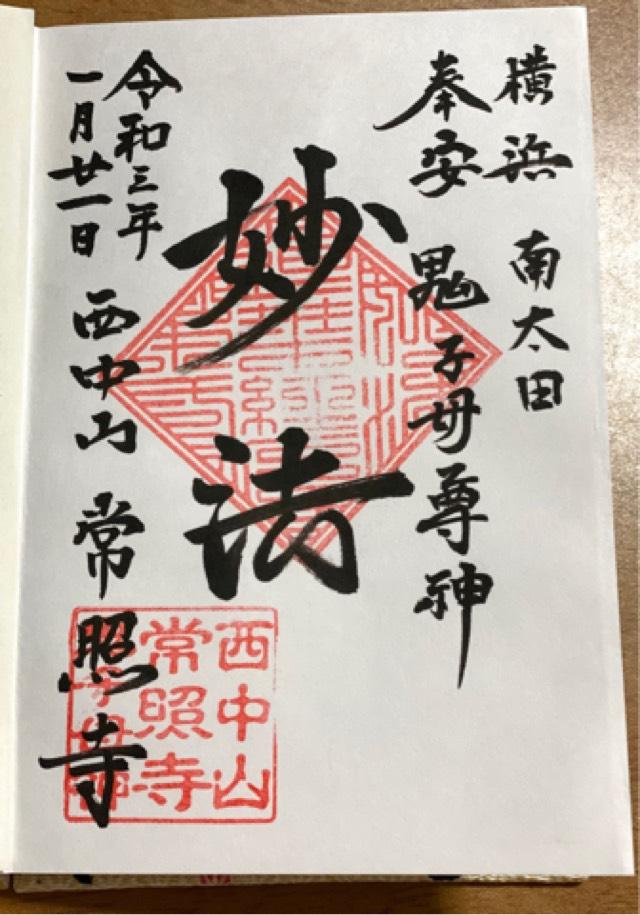 横浜 南太田
奉安 鬼子母尊神
妙法
令和三年
一月廿一日 西中山 常照寺
西中山
常照寺